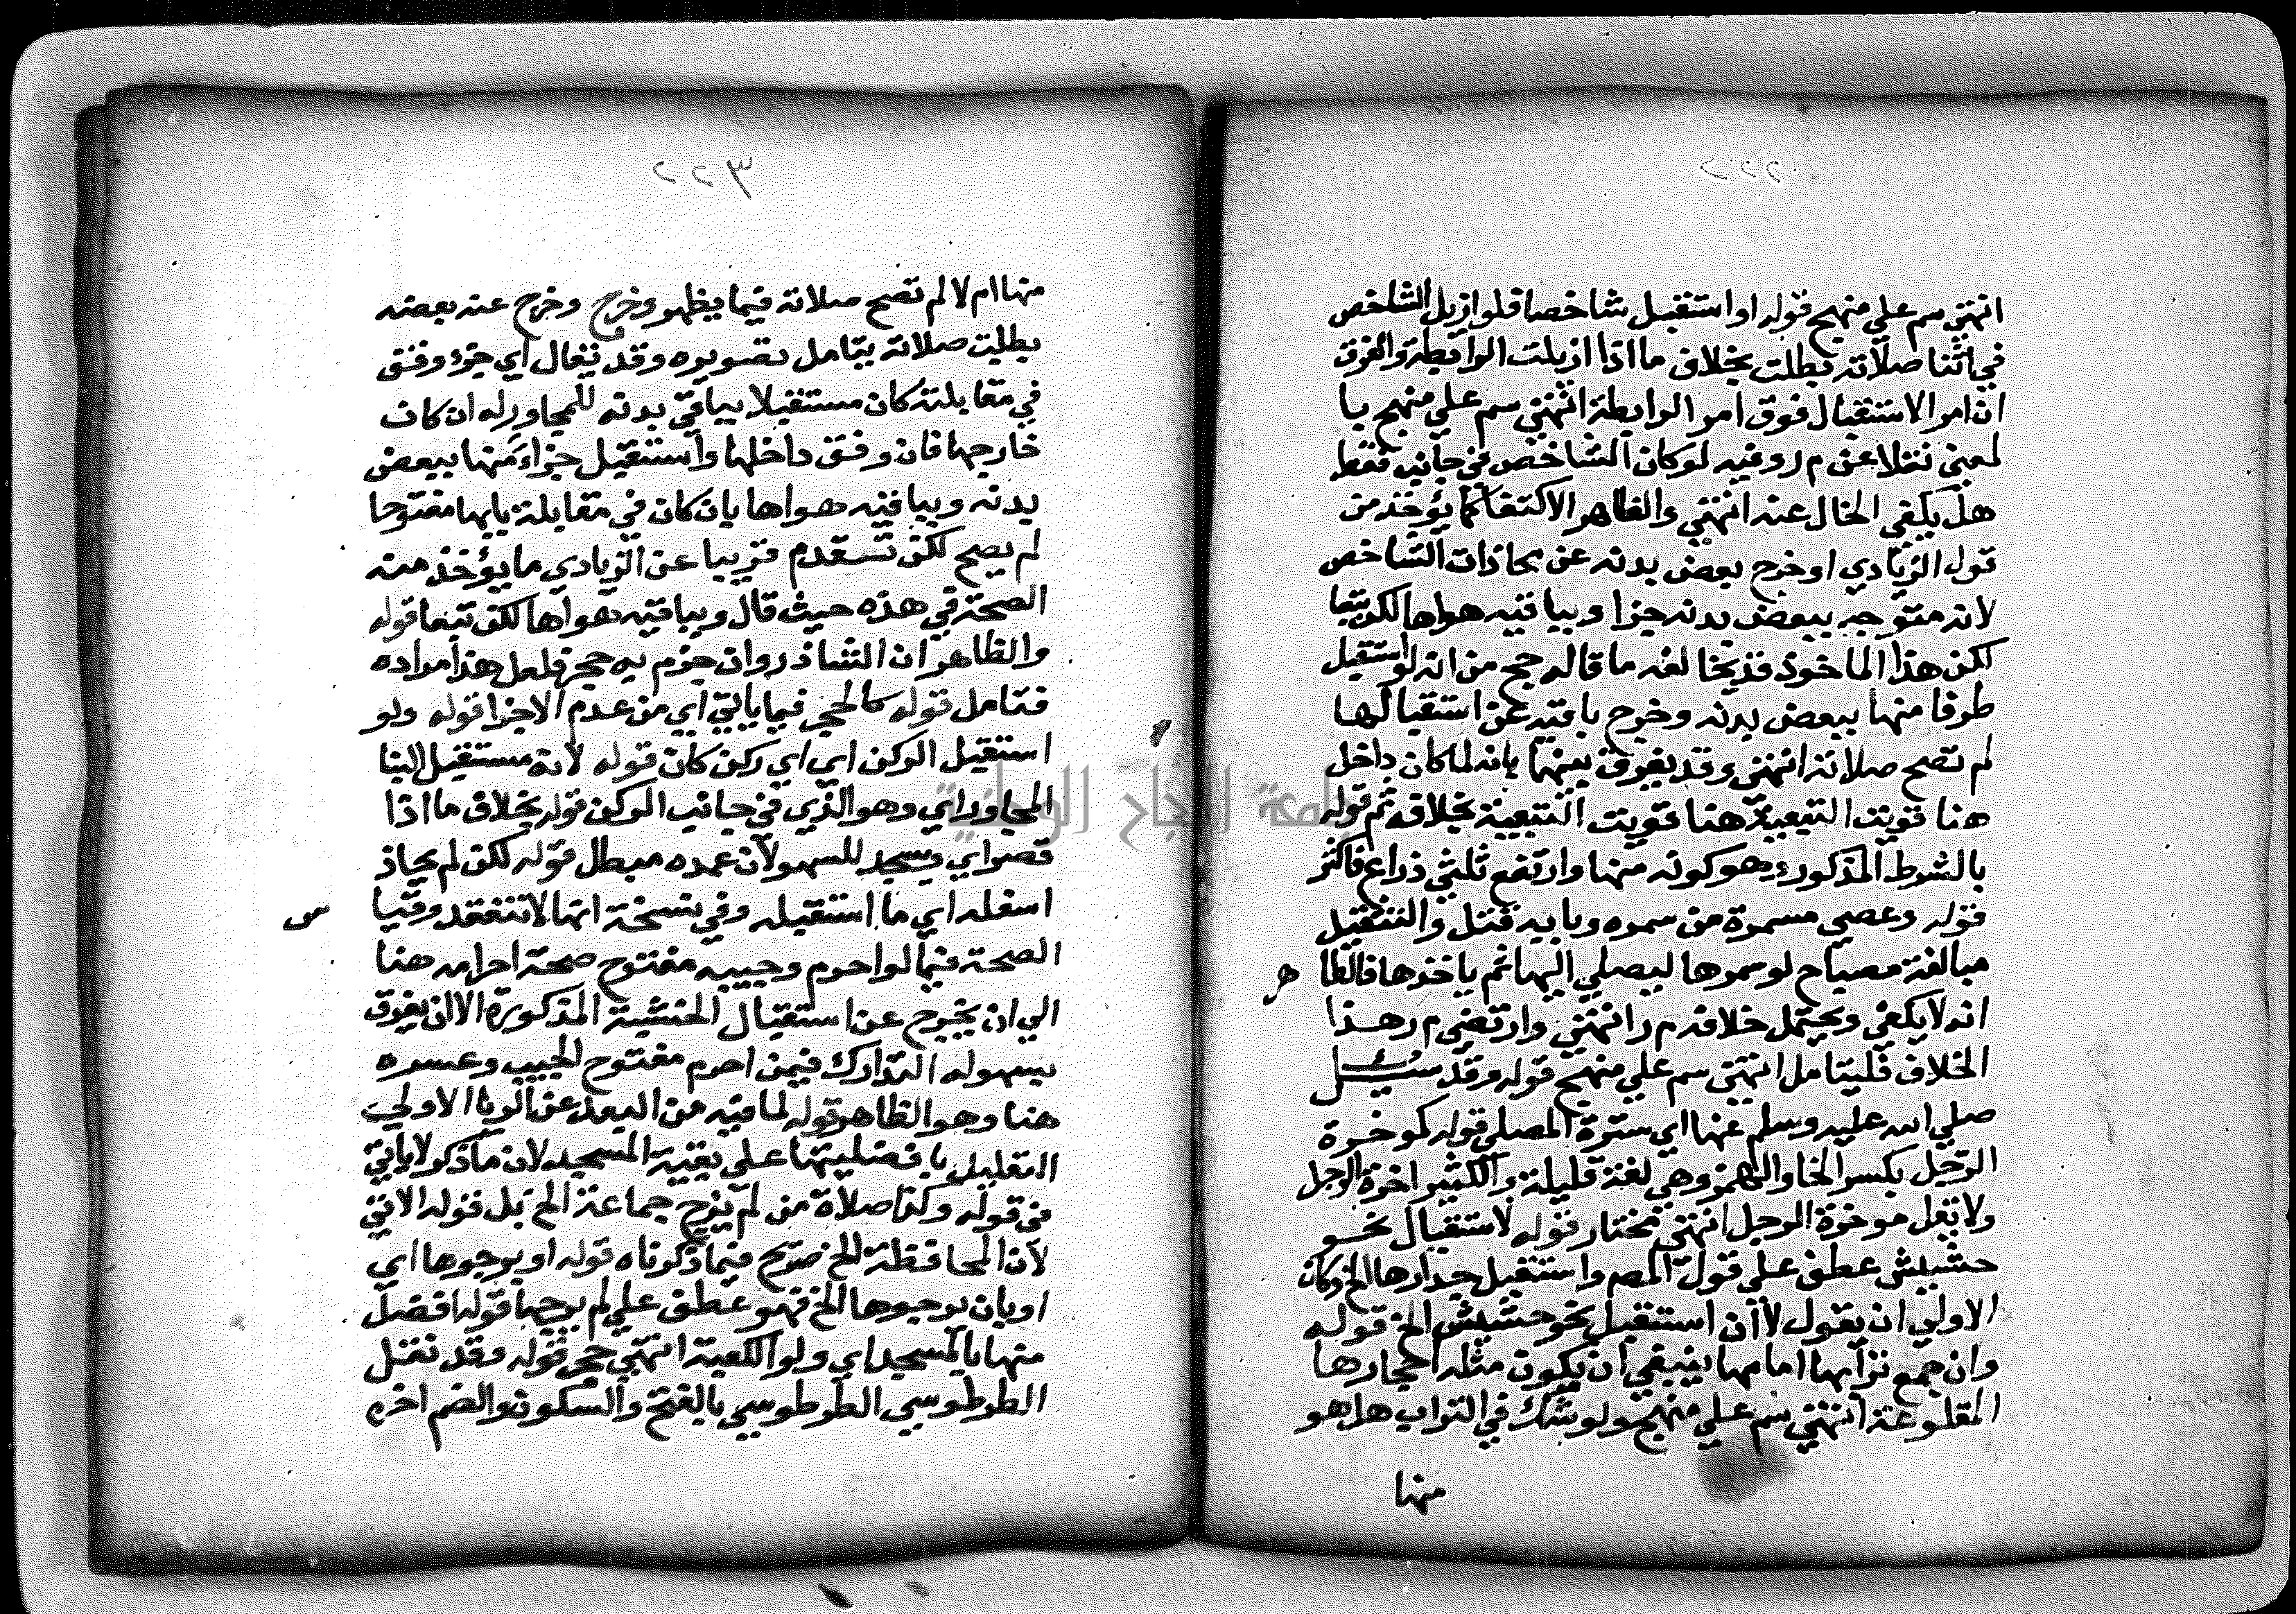 ٢٢٢
انتهي سم علي منهج قوله او استقبل شاخصا فلو ازيل الشاخص
في اثنا صلاته بطلت بخلاف ما اذا ازيلت الرابطة والفرق
ان امر الاستقبال فوق امر الرابطة انتهي سم علي منهج با
لمعني نقلا عن م ر وعنه لو كان الشاخص في جانبه فقط
هل يكفي الخال عنه انتهي والظاهر الاكتفا كما يؤخذ من
قول الزيادي او خرج بعض بدنه عن محاذات الشاخص
لانه متوجه ببعض بدنه جزا وبباقيه هواها لكن تبعا
لكن هذا الماخوذ قد يخالفه ما قاله حج من انه لو استقبل
طرفا منها ببعض بدنه وخرج باقيه عن استقبالها
لم تصح صلاته انتهي وقد يفرق بينهما بانه لما كان داخل
هنا قويت التبعية هنا قويت التبعية بخلافه ثم قوله
بالشرط المذكور وهو كونه منها وارتفع ثلثي ذراع فاكثر
قوله وعصي مسمرة من سمره وبابه قتل والتثقيل
مبالغة مصباح لو سمرها ليصلي اليها ثم ياخذها فالظا
هر
انه لا يكفي ويحتمل خلافه م ر انتهي وارتضي م ر هذا
الخلاف فليتامل انتهي سم علي منهج قوله وقد سئل
صلي الله عليه وسلم عنها اي سترة المصلي قوله كموخرة
الرحل بكسر الخا والهمز وهي لغة قليلة والكثير اخرة الرحل
ولا تقل موخرة الرحل انتهي مختار قوله لاستقبال نحو
حشيش عطف علي قول المص واستقبل جدارها الخ وكان
الاولي ان يقول لا ان استقبل نحو حشيش الخ قوله
وان جمع ترابها امامها ينبغي ان يكون مثله احجارها
المقلوعة انتهي سم علي منهج ولو شك في التراب هل هو
منها
٣٢٢
منها ام لا لم تصح صلاته فيما يظهر وخرج وخرج عنه بعضه
بطلت صلاته بتامل تصويره وقد يقال اي جزء وقف
في مقابلته كان مستقبلا بباقي بدنه للمجاور له ان كان
خارجها فان وقف داخلها واستقبل جزاء منها ببعض
بدنه وبباقيه هواها بان كان في مقابلة بابها مفتوحا
لم يصح لكن تقدم قريبا عن الزيادي ما يؤخذ منه
الصحة في هذه حيث قال وبباقيه هواها لكن تبعا قوله
والظاهر ان الشاذروان جزم به حج فلعل هذا مراده
فتامل قوله كالحجر فيما ياتي اي من عدم الاجزا قوله ولو
استقبل الركن اي اي ركن كان قوله لانه مستقبل البنا
المجاور اي وهو الذي في جانب الركن قوله بخلاف ما اذا
قصر اي ويسجد للسهو لان عمده مبطل قوله لكن لم يحاذ
اسفله اي ما استقبله وفي نسخة انها لا تنعقد وقيا
س
الصحة فيما لو احرم وجيبه مفتوح صحة احرامه هنا
الي ان يخرج عن استقبال الخشبة المذكورة الا ان يفرق
بسهوله التدارك فيمن احرم مفتوح الجيب وعسره
هنا وهو الظاهر قوله لما فيه من البعد عن الريا الاولي
التعليل بافضليتها علي بقية المسجد لان ما ذكر لا ياتي
في قوله وكذا صلاة من لم يرج جماعة الخ بل قوله الاتي
لان المحافظة الخ صريح فيما ذكرناه قوله او يرجوها اي
او بان يرجوها الخ فهو عطف علي لم يرجها قوله افضل
منها بالمسجد اي ولو الكعبة انتهي حج قوله وقد نقل
الطرطوسي الطرطوسي بالفتح والسكون والضم اخره